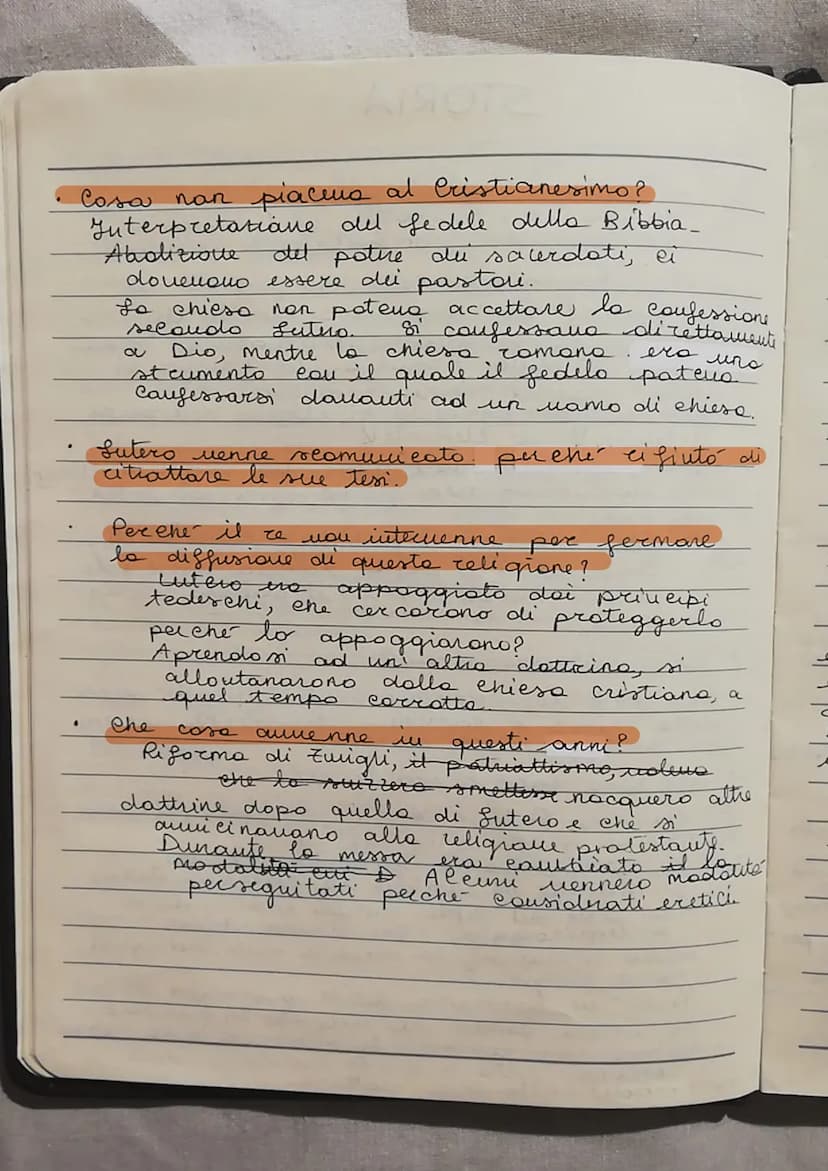 STORIA
· Cosa non piaceva al Cristianesimo?
Interpretazione del fedele della Bibbia_
Abolizione del potere dei sacerdoti, ci
dovevano essere dei pastori.
La chiesa non poteva accettare la confessione
secondo Lutero. Si confessava direttamente
a Dio, mentre la chiesa romana era uno
strumento con il quale il fedele poteva
confessarsi davanti ad un uomo di chiesa.
· Lutero venne scomunicato perché rifiutò di
ritrattare le sue tesi.
· Perché il re non intervenne per fermare
la diffusione di questa religione?
Lutero era appoggiato dai principi
tedeschi, che cercarono di proteggerlo
perché lo appoggiarono?
Aprendosi ad un'altra dottrina, si
allontanarono dalla chiesa cristiana, a
quel tempo corrotta.
· Che cosa avvenne in questi anni?
Riforma di Zwigli, il patriottismo, voleva
che la svizzera smettesse nacquero altre
dottrine dopo quella di Lutero e che si
avvicinavano alla religione protestante.
Durante la messa era cambiato il la
modalità cui D Alcuni vennero modalità
perseguitati perché considerati eretici.